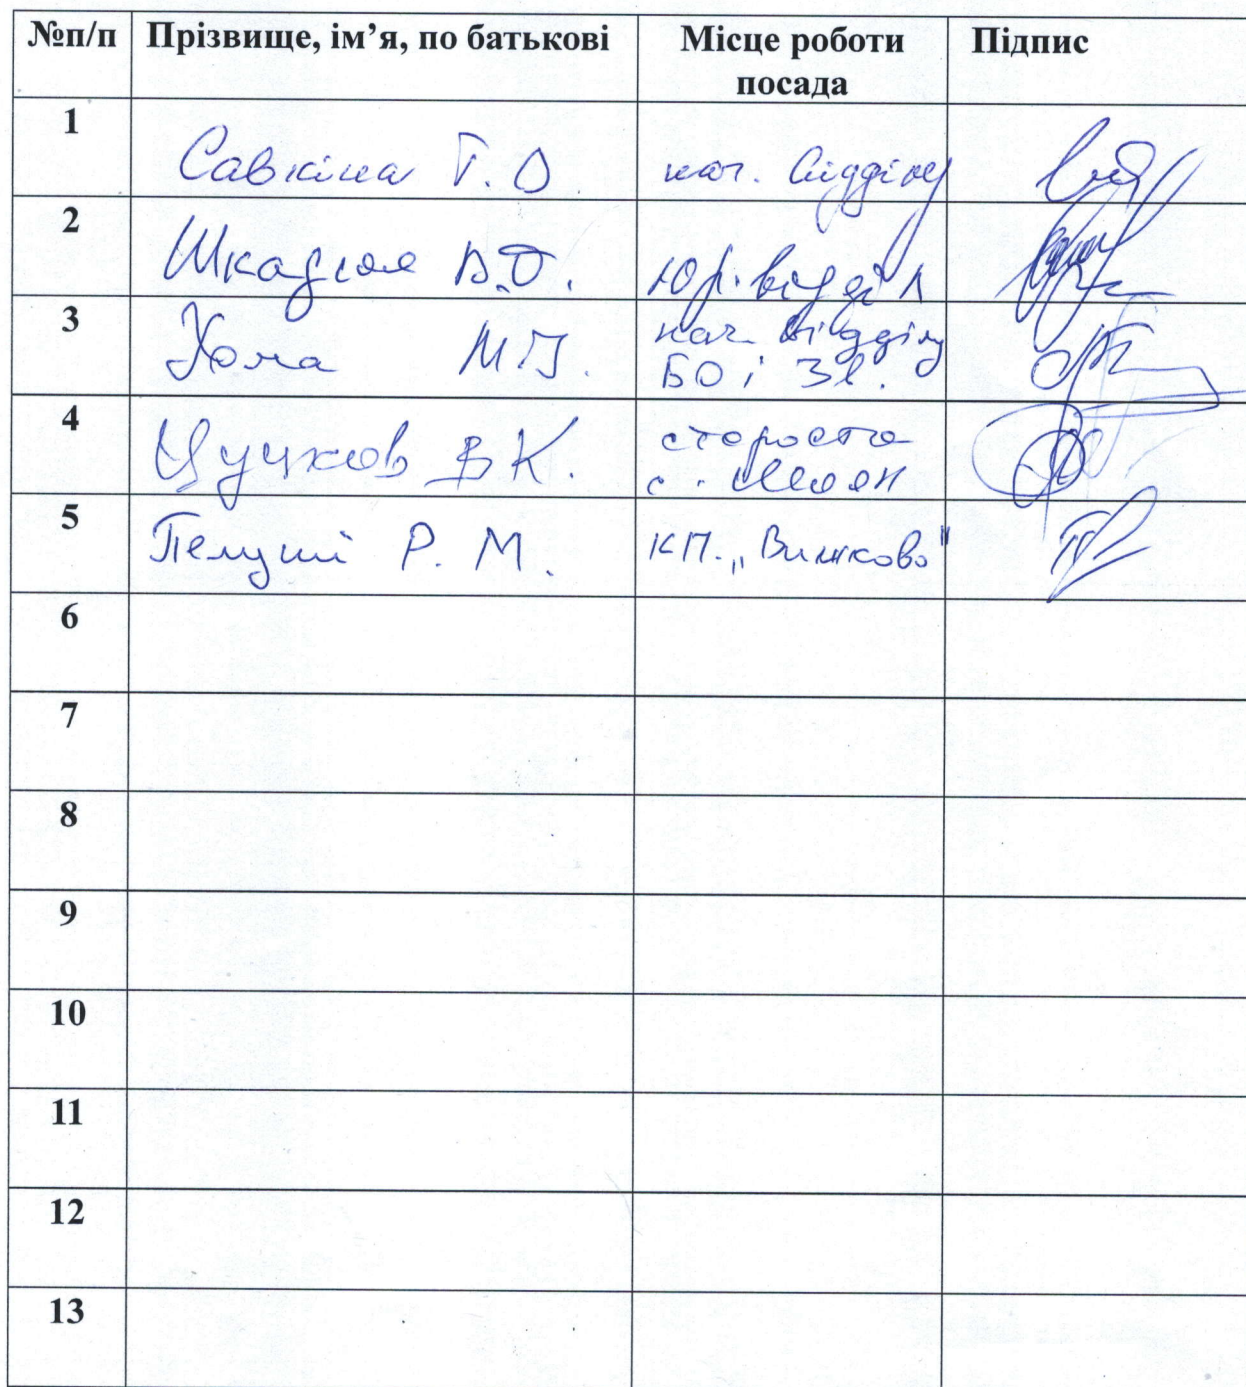 №п/п Прізвище, ім’я, по батькові Місце роботи посада Підпис
1 Савкіна Т. О нач. відділу
2 В.О. Юр. відділ
3 Хома М.І. нач. відділу
БО і Зв.
4 Цучков В К. староста
с.
5 Пелуші Р. М. КП. „Вишково"
6
7
8
9
10
11
12
13